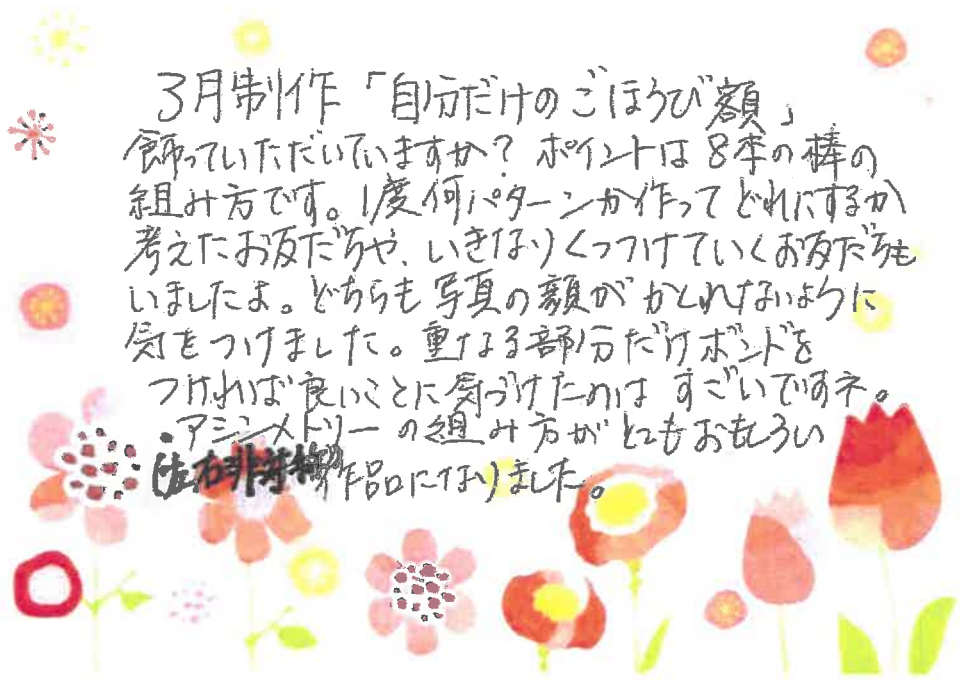 3月制作「自分だけのごほうび額」
飾っていただいていますか？ ポイントは8本の棒の
組み方です。1度何パターンか作ってどれにするか
考えたお友だちや、いきなりくっつけていくお友だちも
いましたよ。どちらも写真の顔がかくれないように
気をつけました。重なる部分だけボンドを
つければ良いことに気づけたのはすごいですネ。
アシンメトリーの組み方がとてもおもしろい
(左右非対称) 作品になりました。